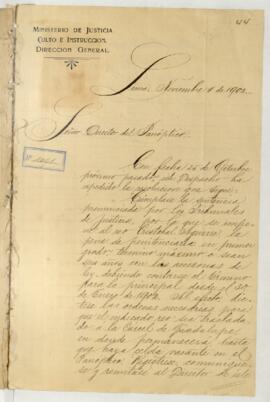 44
MINISTERIO DE JUSTICIA
CULTO E INSTRUCCION
DIRECCION GENERAL
Lima, Noviembre 8 de 1902.
Señor Director del Panóptico.
Con fecha 25 de Octubre
próximo pasado, el Despacho ha
expedido la resolución que sigue:
Cúmplase la sentencia
pronunciada por los Tribunales
de justicia, por la que se impo
al reo Cristobal la
pena de penitenciaría en primer
grado, término máximo o sean
seis años con las accesorias de
ley, debiendo contarse el término
para la principal desde el 30
de Enero de 1902. Al efecto, dic
las órdenes necesarias para
que el indicado reo sea traslada
do a la Carcel de Guadalupe
en donde permanecerá hasta
que haya celda vacante en el
Panóptico. Regístrese, comuníque
se y remítase al Director de este